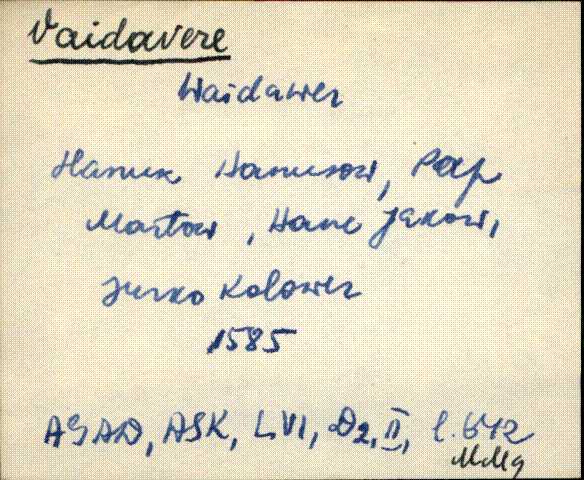 Vaidavere
Waidawer
Hanus Hanusow, Pap
Martow, Hans Jakow,
Jurko Kolower
1585
AGAD, ASK, LVI, D2, II, l. 642
MMg